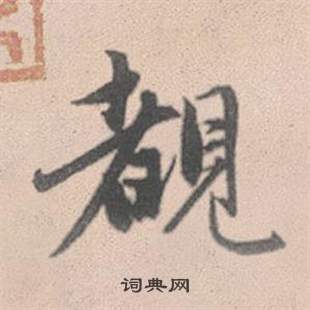 覩
词典网